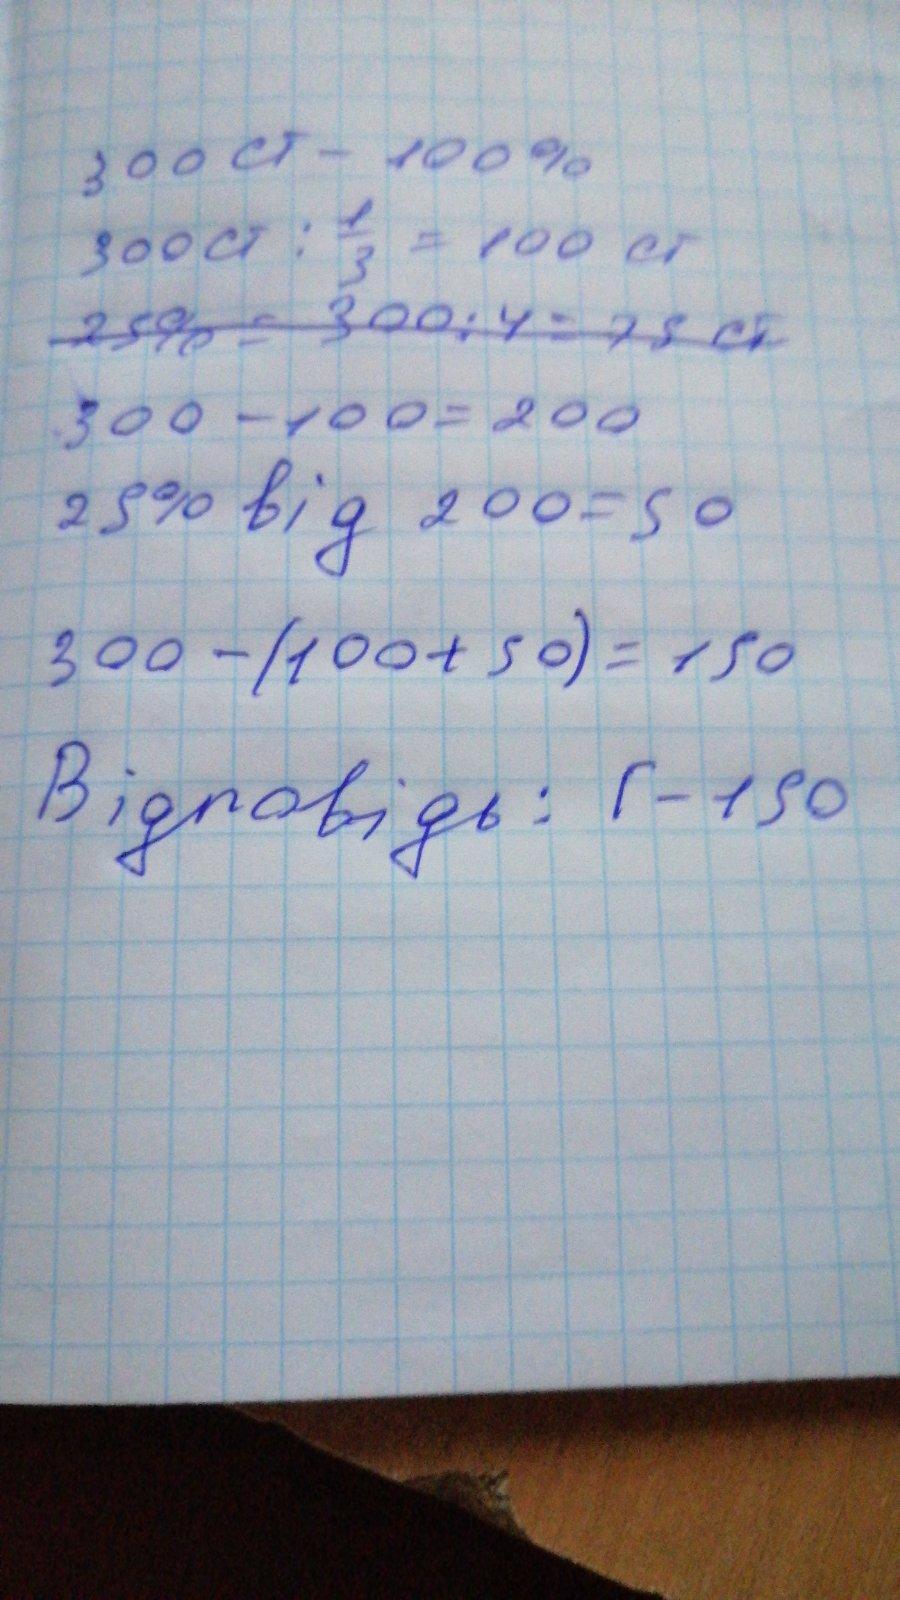 300 ст - 100%
300 ст : 1/3 = 100 ст
25% = 300 : 4 = 75 ст
300 - 100 = 200
25% від 200 = 50
300 - (100 + 50) = 150
Відповідь: Г - 150